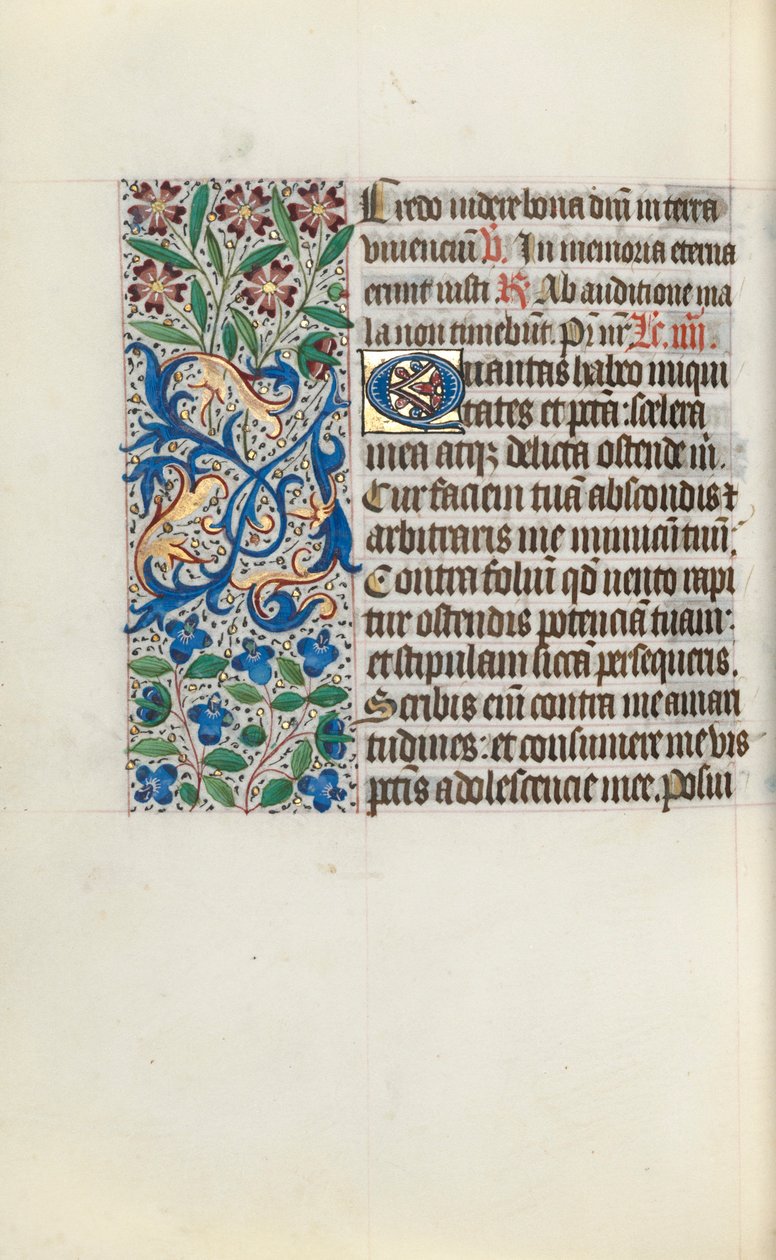 Credo videre bona dñi in terra
viuenciũ V̄. In memoria eterna
erunt iusti R̄. Ab auditione ma
la non timebũt. Pr̄ nr̄ Lc̄. iiij.
Quantas habeo iniqui
tates et pctã: scelera
mea atqꝫ delicta ostende m̄.
Cur faciem tuã abscondis ⁊
arbitraris me inimicũ tuũ:
Contra foliũ qd̄ uento rapi
tur ostendis potenciã tuam:
et stipulam siccã persequeris.
Scribis eiñ contra me amari
tudines: et consumere me vis
pctĩs adolescencie mee. Posui